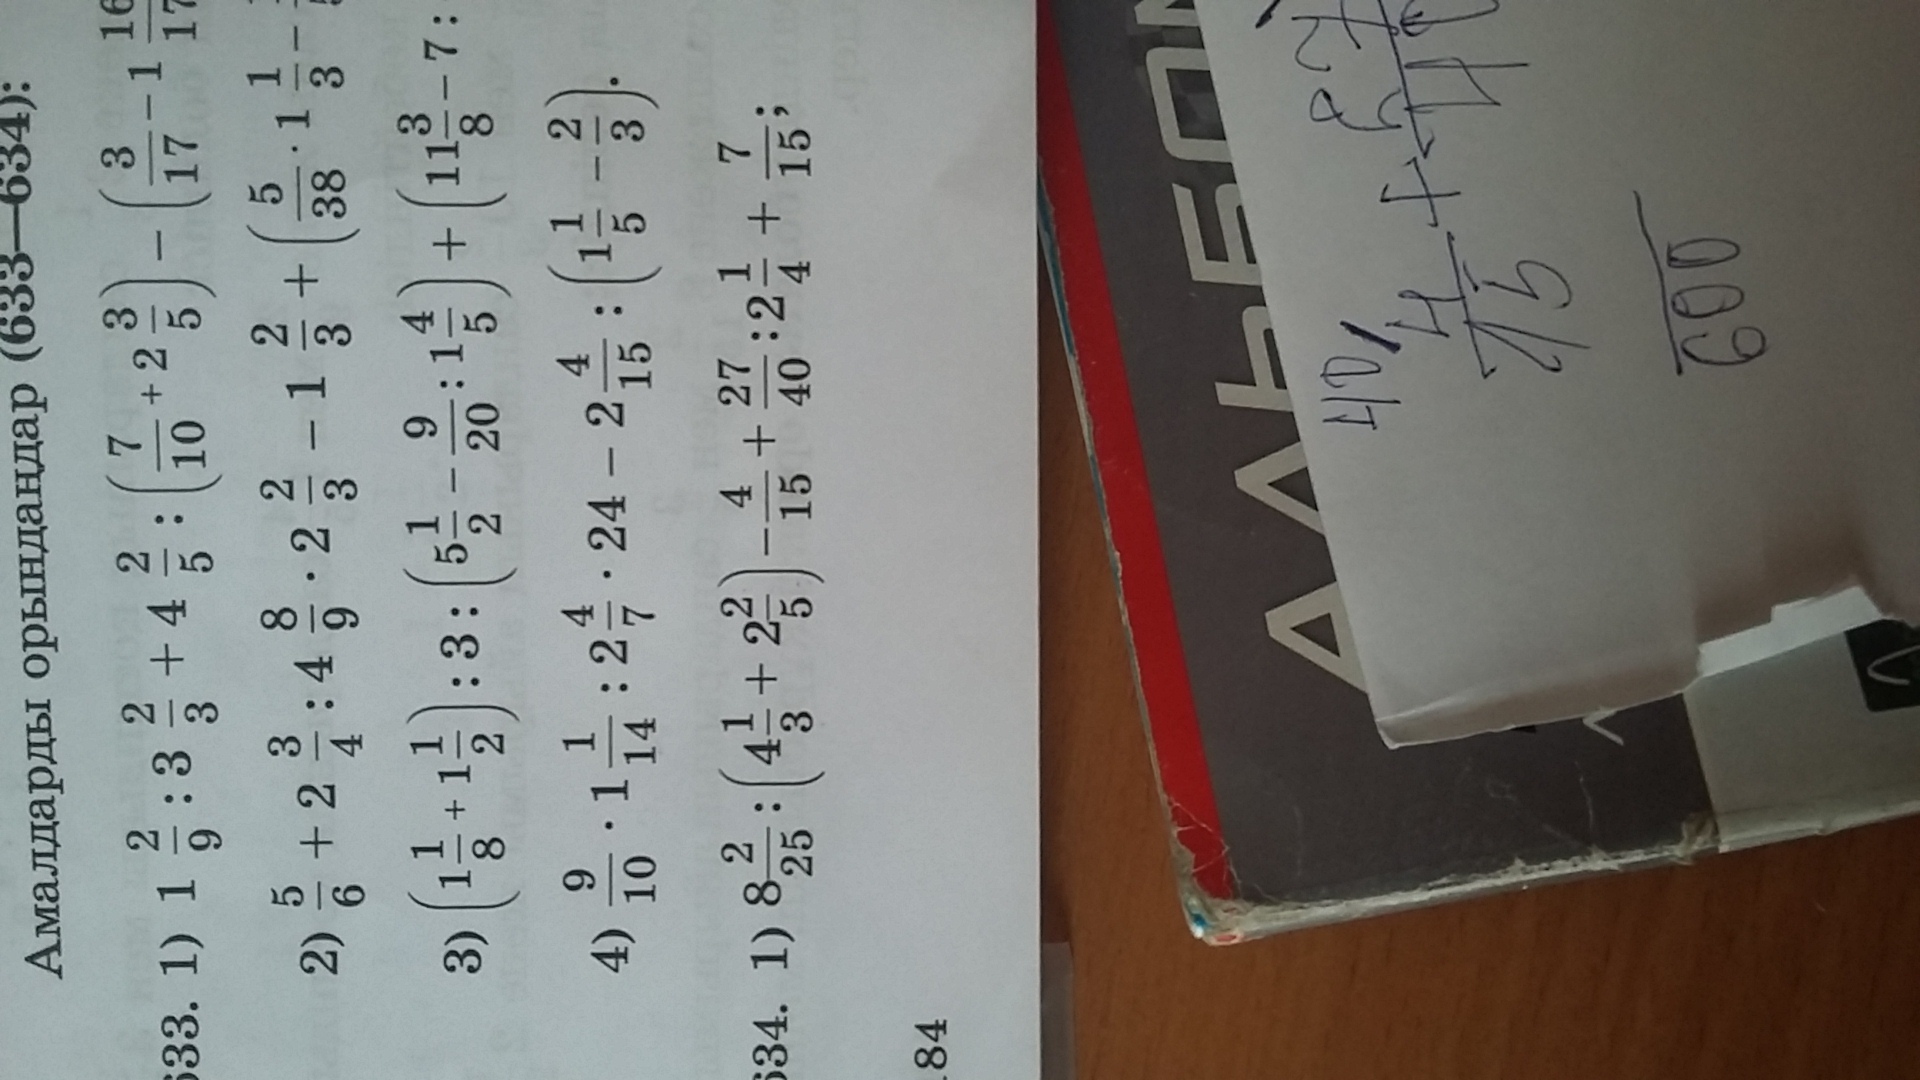 Амалдарды орындаңдар (633—634):
633. 1) 1 2/9 : 3 2/3 + 4 2/5 : (7/10 + 2 3/5) − (3/17 − 1 16/17
2) 5/6 + 2 3/4 : 4 8/9 · 2 2/3 − 1 2/3 + (5/38 · 1 1/3 −
3) (1 1/8 + 1 1/2) : 3 : (5 1/2 − 9/20 : 1 4/5) + (11 3/8 − 7 :
4) 9/10 · 1 1/14 : 2 4/7 · 24 − 2 4/15 : (1 1/5 − 2/3).
634. 1) 8 2/25 : (4 1/3 + 2 2/5) − 4/15 + 27/40 : 2 1/4 + 7/15;
184
АЛЬБОМ
40/ 4/15 +
600